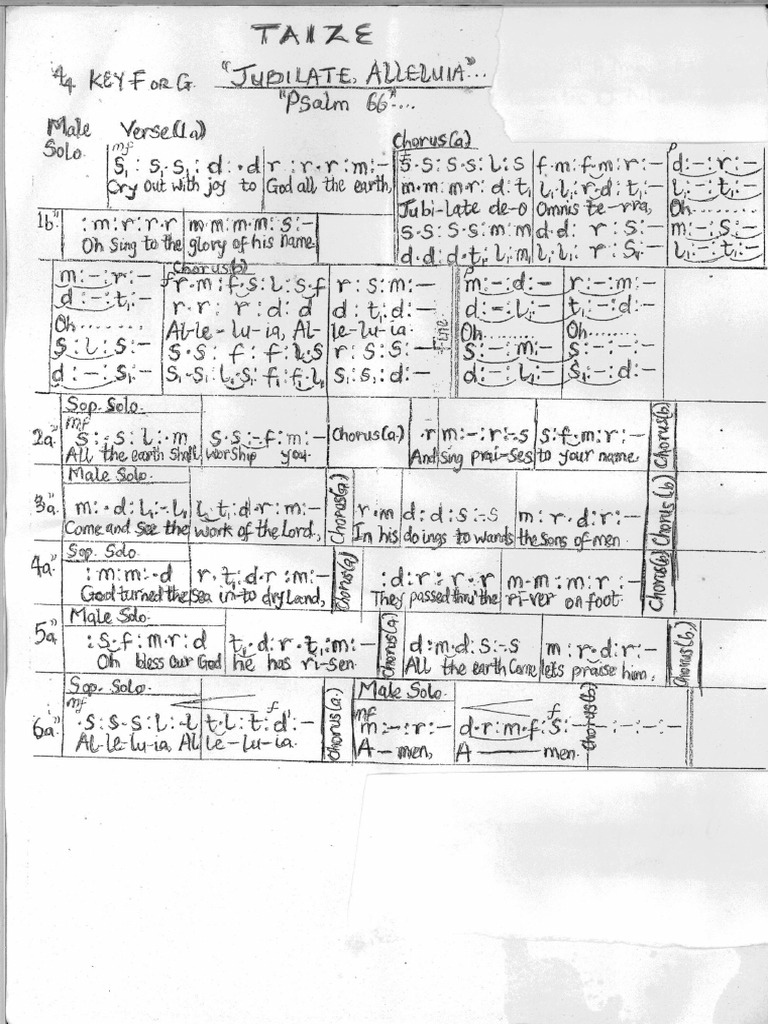 TAIZE
4/4 KEY F OR G. "JUBILATE, ALLELUIA"...
"Psalm 66"...
Male Solo. Verse (1a) Chorus (a)
mf f p
S₁ : S₁.S₁ : d : .d r : r.r : m : - S.S : S.S : L : S f.m : f.m : r : - d : - : r : -
Cry out with joy to God all the earth, m.m : m.r : d : t₁ l₁.l₁ : r.d : t₁ : - l₁ : - : t₁ : -
Jubi-late de-o Omnis te-rra, Oh........
1b" : m : r : r.r m.m : m.m : S : - S.S : S.S : m : m d.d : r : S : - m : - : S : -
Oh Sing to the glory of his name. d.d : d.t₁ : l₁ : m₁ l₁.l₁ : r : S₁ : - l₁ : - : t₁ : -
Chorus (b)
f p
m : - : r : - r.m : f.S : L : S.f r : S : m : - m : - : d : - r : - : m : -
d : - : t₁ : - r.r : r : d : d d : t₁ : d : - d : - : l₁ : - t₁ : - : d : -
Oh........ Al-le-lu-ia, Al- le-lu-ia. Oh...... Oh......
S : L : S : - S.S : f : f : L.S r : S : S : - Fine S : - : m : - S : - : - : -
d : - : S₁ : - S₁.S₁ : L₁.S₁ : f₁ : f₁.L₁ S₁ : S₁ : d : - d : - : L₁ : - S₁ : - : d : -
Sop. Solo.
mf
2a" S : .S : L : .m S.S : - .f : m : - Chorus (a.) .r m : - : r : - .S S : f.m : r : - Chorus (b)
All the earth Shall worship you. And sing prai-ses to your name.
Male Solo.
3a" m : .d : L₁ : - .L₁ L₁.t₁ : d.r : m : - Chorus (a) r.m d : d : S : - .S m : r.d : r : - Chorus (b)
Come and See the work of the Lord, In his doings to wards the Sons of men.
Sop. Solo.
4a" : m : m : .d r.t₁ : d.r : m : - Chorus (a) : d : r : r.r m.m : m : r : - Chorus (b)
God turned the Sea in-to dry Land, They passed thru the ri-ver on foot.
Male Solo.
5a" : S.f : m.r : d t₁.d : r.t₁ : m : - Chorus (a) d : m.d : S : - .S m : r.d : r : - Chorus (b)
Oh bless our God he has ri-sen. All the earth Come lets praise him.
Sop. Solo. Male Solo.
mf f mf f
6a" .S : S.S : L : .L t.L : t : d' : - Chorus (a.) m : - : r : - d.r : m.f : S : - Chorus (b) - : - : - : -
Al-Le-lu-ia, Al Le-lu-ia. A-men, A——men.